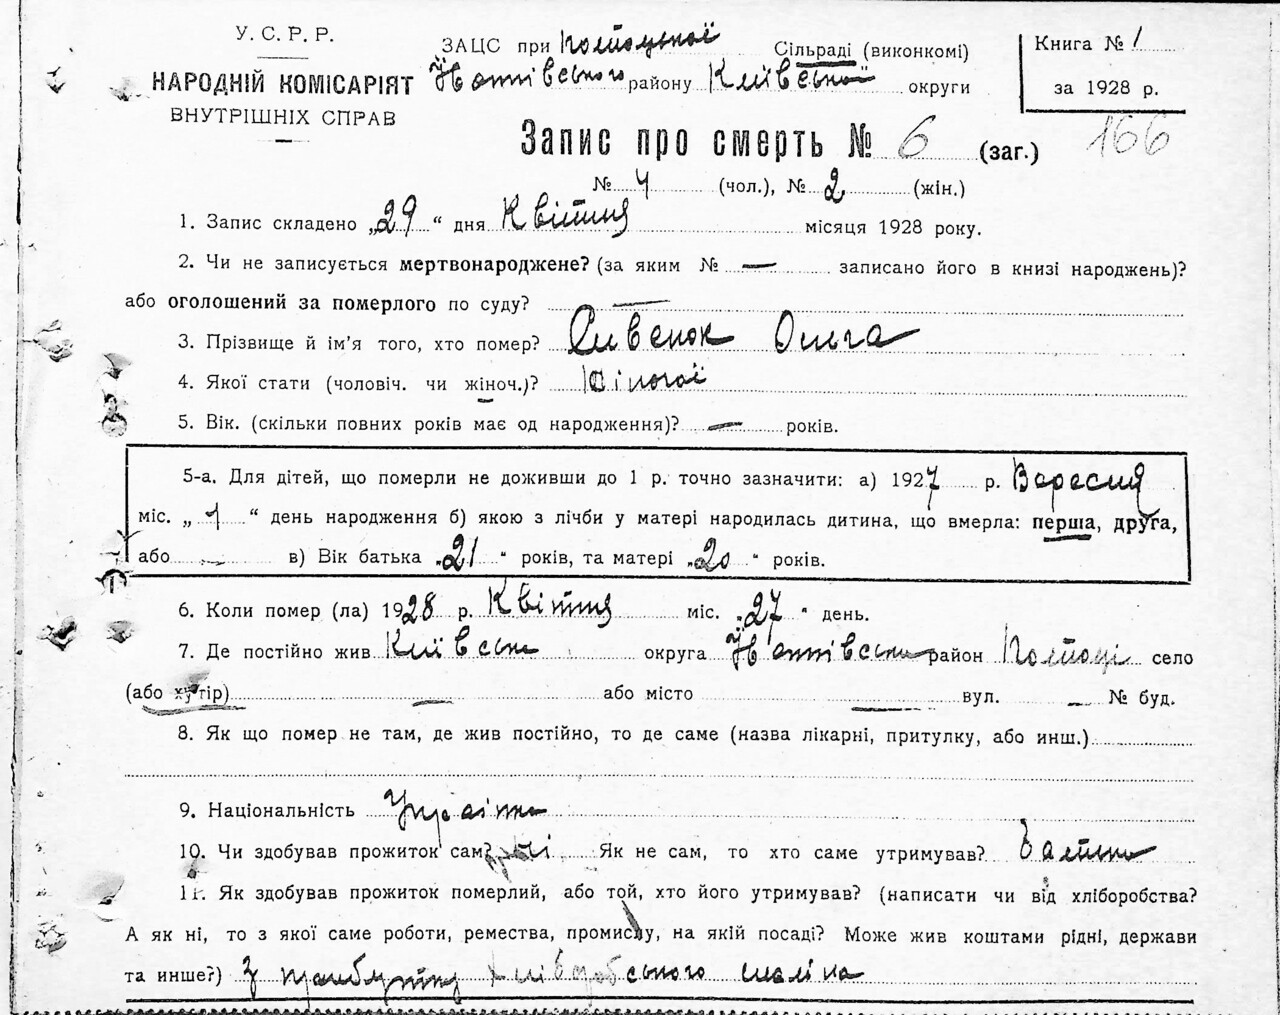 У. С. Р. Р.
НАРОДНІЙ КОМІСАРІЯТ
ВНУТРІШНІХ СПРАВ
ЗАЦС при Сільраді (виконкомі)
району Київської округи
Книга № 1
за 1928 р.
Запис про смерть № 6 (заг.)
166
№ 4 (чол.), № 2 (жін.)
1. Запис складено „29“ дня Квітня місяця 1928 року.
2. Чи не записується мертвонароджене? (за яким № — записано його в книзі народжень)?
або оголошений за померлого по суду? —
3. Прізвище й ім'я того, хто помер? Ольга
4. Якої стати (чоловіч. чи жіноч.)? Жіночої
5. Вік. (скільки повних років має од народження)? — років.
5-а. Для дітей, що померли не доживши до 1 р. точно зазначити: а) 1927 р. Вересня
міс. „1“ день народження б) якою з лічби у матері народилась дитина, що вмерла: перша, друга,
або — в) Вік батька „21“ років, та матері „20“ років.
6. Коли помер (ла) 1928 р. Квітня міс. „27“ день.
7. Де постійно жив Київськ округа район село
(або хутір) — або місто — вул. — № буд.
8. Як що помер не там, де жив постійно, то де саме (назва лікарні, притулку, або инш.)
9. Національність Україн
10. Чи здобував прожиток сам? ні Як не сам, то хто саме утримував? Батьки
11. Як здобував прожиток померлий, або той, хто його утримував? (написати чи від хліборобства?
А як ні, то з якої саме роботи, ремества, промислу, на якій посаді? Може жив коштами рідні, держави
та инше?) З прибутку